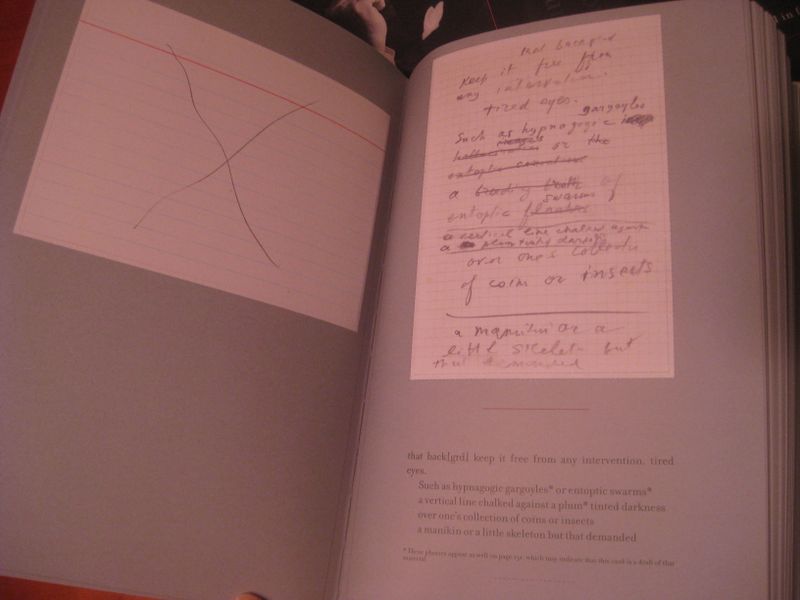 that backgrd
keep it free from
any intervention.
tired eyes.
gargoyles
Such as hypnagogic
or the
a
swarms of
entoptic
a vertical line chalked against
a plum tinted darkness
over one's collection
of coins or insects
a manikin or a
little skeleton but
that demanded
that back[grd] keep it free from any intervention. tired
eyes.
Such as hypnagogic gargoyles* or entoptic swarms*
a vertical line chalked against a plum* tinted darkness
over one's collection of coins or insects
a manikin or a little skeleton but that demanded
* These phrases appear as well on page 151, which may indicate that this card is a draft of that
material.